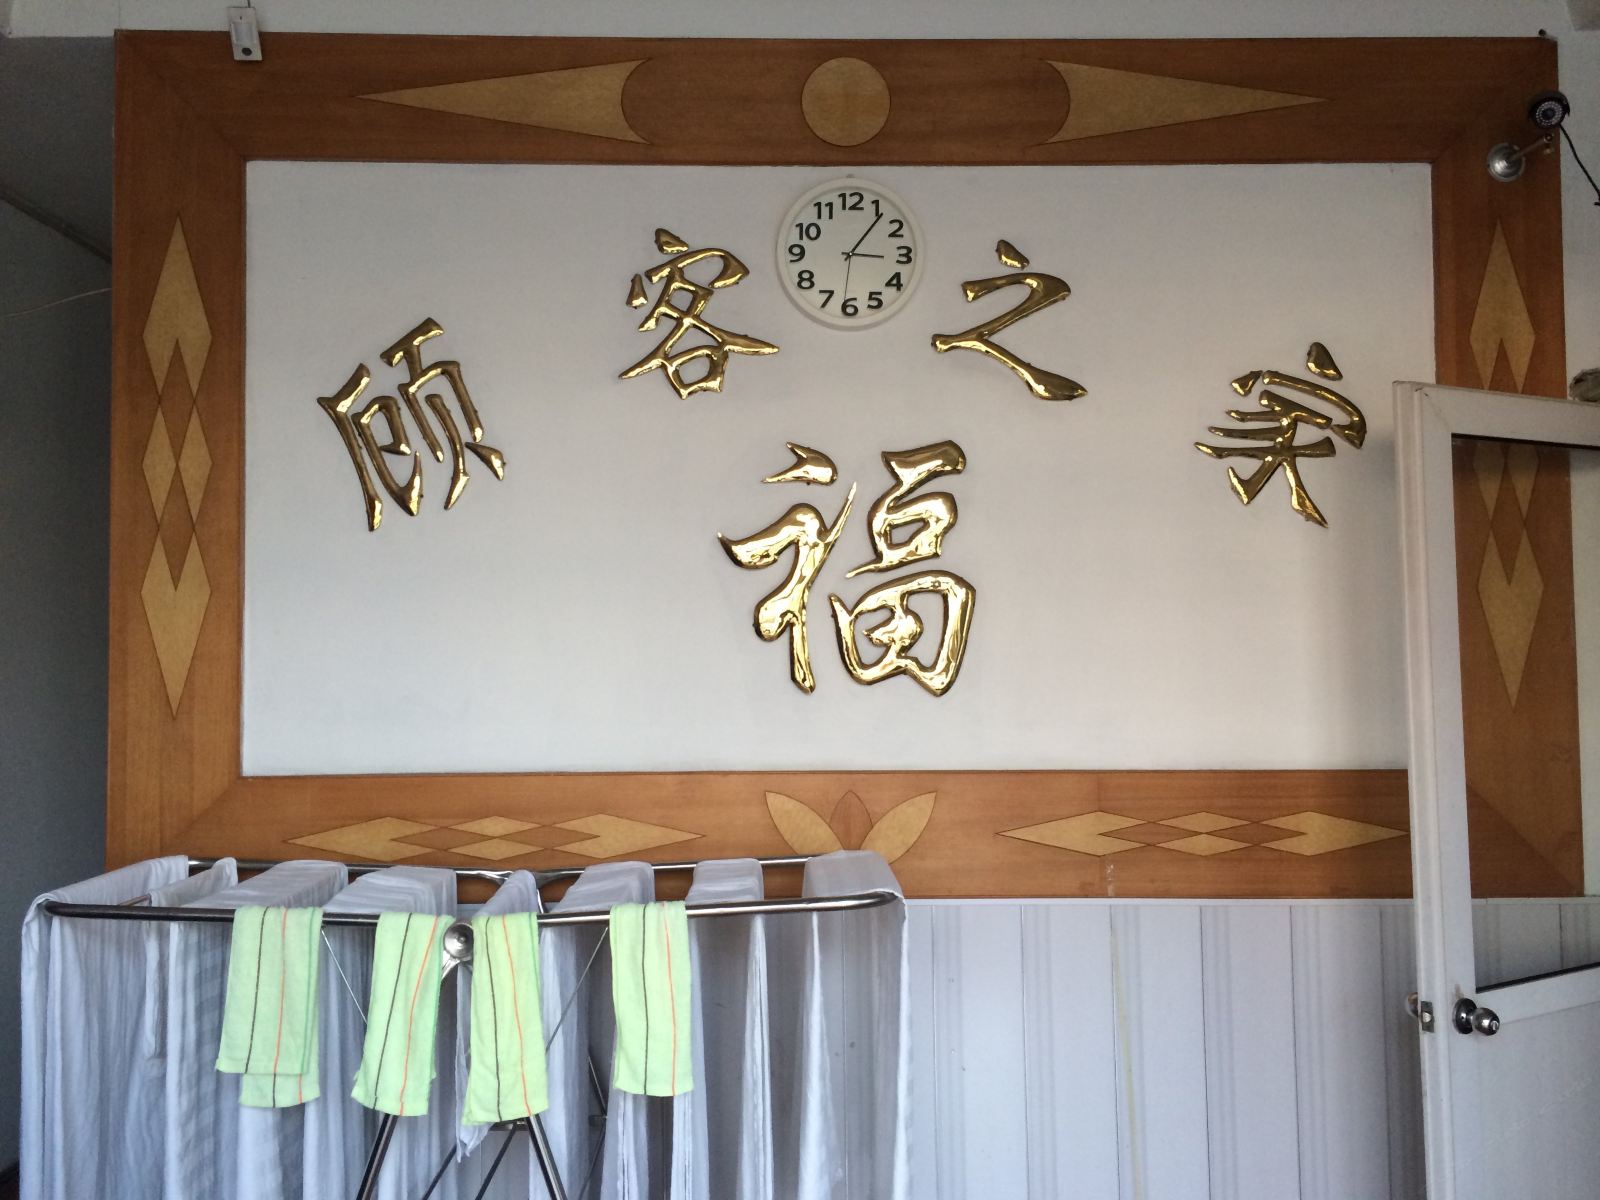 顾客之家
福
12
1
2
3
4
5
6
7
8
9
10
11